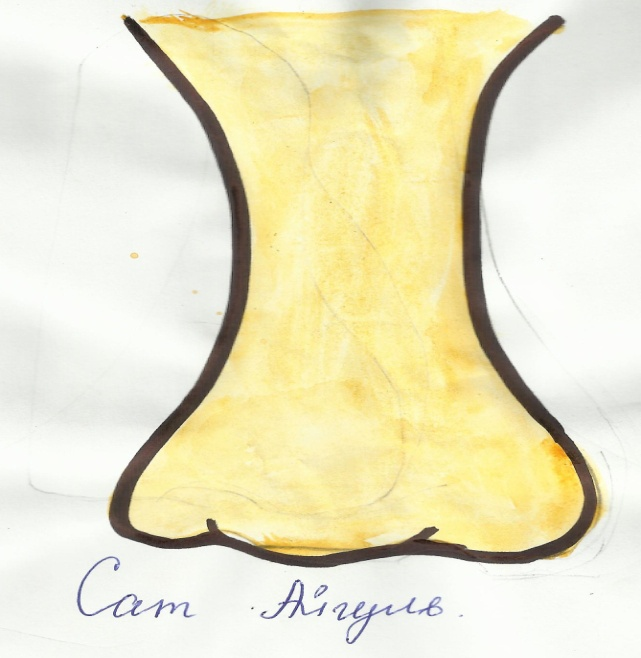 Сат Айгуль.